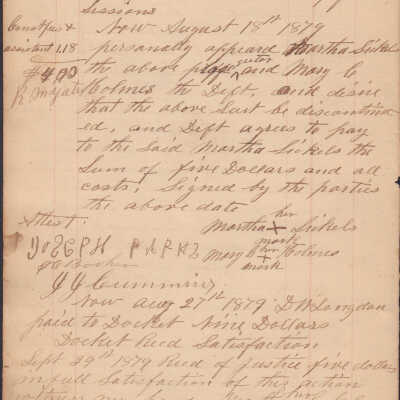 Sessions
Now August 18th 1879
personally appeared Martha Sickels
the above prosecutor and Mary C
Holmes the Deft, and desire
that the above Suit be discontinu-
ed, and Deft agrees to pay
to the Said Martha Sickels the
Sum of five Dollars and all
costs, Signed by the parties
the above date
Attest:
her
Martha X Sickels
mark
her
Mary C X Holmes
mark
JJ Cumming
Now aug 27th 1879 D W Langdon
paid to Docket Nine Dollars
Docket Recd Satisfaction
Sept 29th 1879 Recd of Justice five dollars
in full Satisfaction of this action